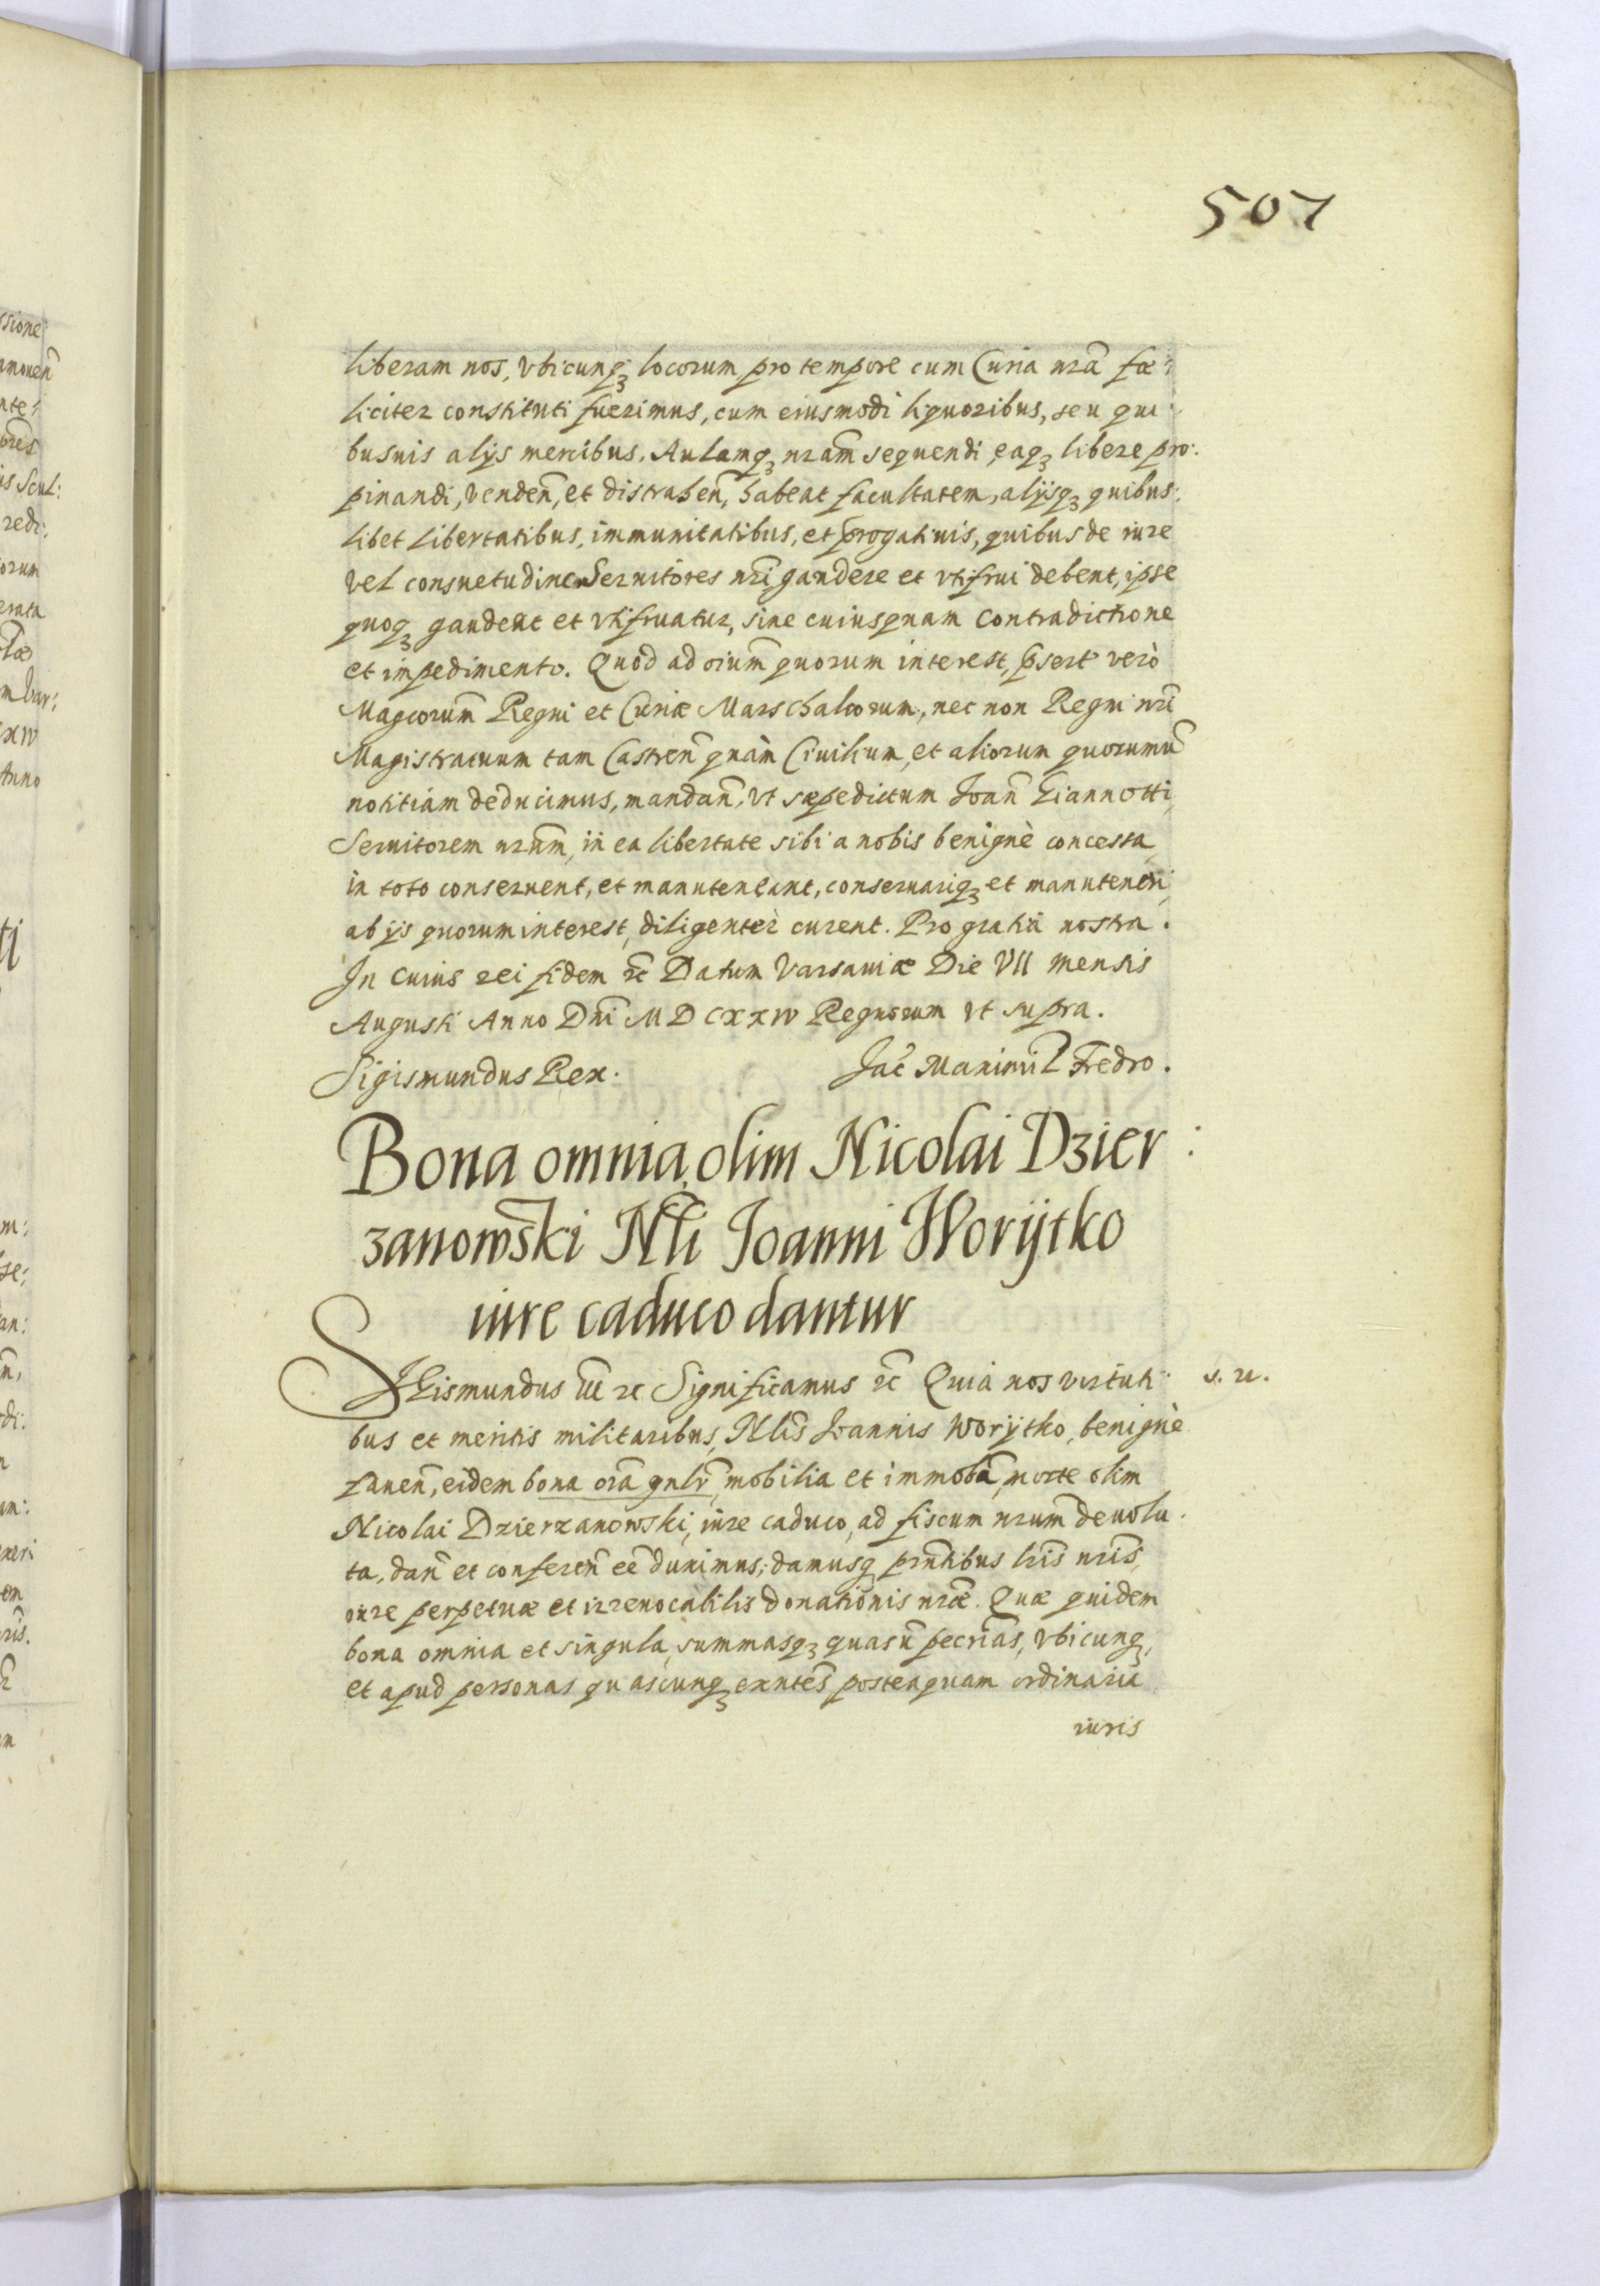 507
liberam nos, vbicunq₃ locorum pro tempore cum Curia nrã fœ:
liciter constituti fuerimus, cum eiusmodi liquoribus, seu qui:
busuis alijs mercibus, Aulamq₃ nram̃ sequendi, eaq₃ libere pro:
pinandi, venden̄, et distrahen̄, habeat facultatem, alijsq₃ quibus:
libet libertatibus, immunitatibus, et p̃rogatiuis, quibus de iure
vel consuetudine Seruitores nrĩ gaudere et vtifrui debent, ipse
quoq₃ gaudeat et vtifruatur, sine cuiusquam contradictione
et impedimento. Quod ad oium̃ quorum interest, p̃sert̃ verò
Magcorum̃ Regni et Curiæ Marschalcorum, nec non Regni nrĩ
Magistratuum tam Castren̄ quàm Ciuilium, et aliorum quorumuis̃
notitiam deducimus, mandan̄, vt sæpedictum Joan̄ Giannotti,
Seruitorem nrum̃, in ea libertate sibi a nobis benignè concessa,
in toto conseruent, et manuteneant, conseruariq₃ et manuteneri,
ab ijs quorum interest, diligenter curent. Pro gratia nostra.
In cuius rei fidem &c̃ Datum Varsauiæ Die VII mensis
Augusti Anno Dni̅ MDCXXIV Regnorum vt supra.
Sigismundus Rex. Jac̃ Maximil̃ Fredro.
Bona omnia, olim Nicolai Dzier:
zanowski Nl̃i Joanni Worijtko
iure caduco dantur
SIGismundus III &c Significamus &c̃ Quia nos virtuti: s. n.
bus et meritis militaribus, Nlis̃ Joannis Worijtko, benignè
fauen̄, eidem bona oĩa gnlr̃, mobilia et immobã, morte olim
Nicolai Dzierzanowski, iure caduco, ad fiscum nrum deuolu:
ta, dan̄ et conferen̄ eẽ duximus; damusq₃ prñtibus lris̃ nris̃,
iure perpetuæ et irreuocabilis donationis nræ̃. Quæ quidem
bona omnia et singula, summasq₃ quasuis̃ pecrias̃, vbicunq₃,
et apud personas quascunq₃ exñtes posteaquam ordinaria
iuris